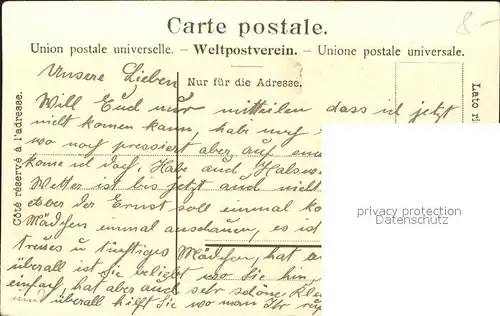 8-
Carte postale.
Union postale universelle. – Weltpostverein. – Unione postale universale.
Nur für die Adresse.
Côté réservé à l'adresse.
Lato ri
Unsere Lieben
Will Euch nur mitteilen dass ich jetzt
nicht komen kann, hab
wo noch pressiert aber auf
kome ich doch. Habe auch Halsw
Wetter ist bis jetzt auch nicht
aber der Ernst soll einmal ko
Mädchen einmal anschauen, es ist
treues u tüchtiges Mädchen, hat
überall ist Sie beliebt wo Sie hin
einfach, hat aber auch sehr schöne Klei
und überall hilft Sie wo man Ihr ruf
privacy protection
Datenschutz